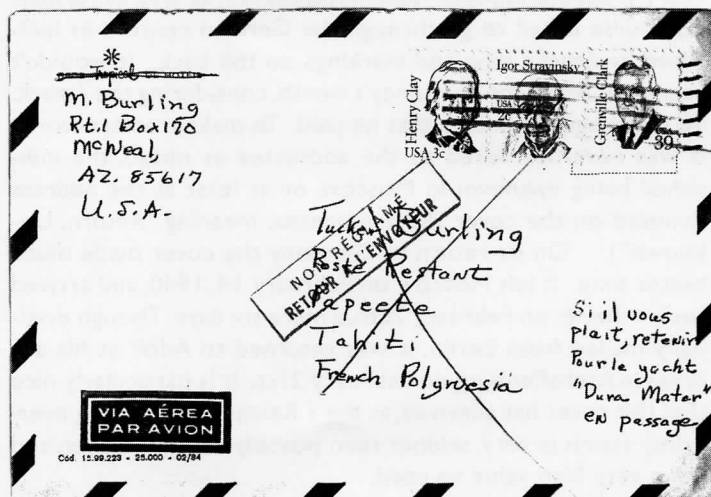 M. Burling
Rt. 1 Box 190
McNeal
AZ. 85617
U.S.A.
Henry Clay
USA 3c
Igor Stravinsky
USA
2c
Grenville Clark
39
NON RÉCLAMÉ
RETOUR À L'ENVOYEUR
Burling
Poste Restant
Papeete
Tahiti
French Polynesia
S'il vous
plait, retenir
Purle yacht
"Dura Mater"
en passage
VIA AÉREA
PAR AVION
Cód. 15.99.223 - 25.000 - 02/84